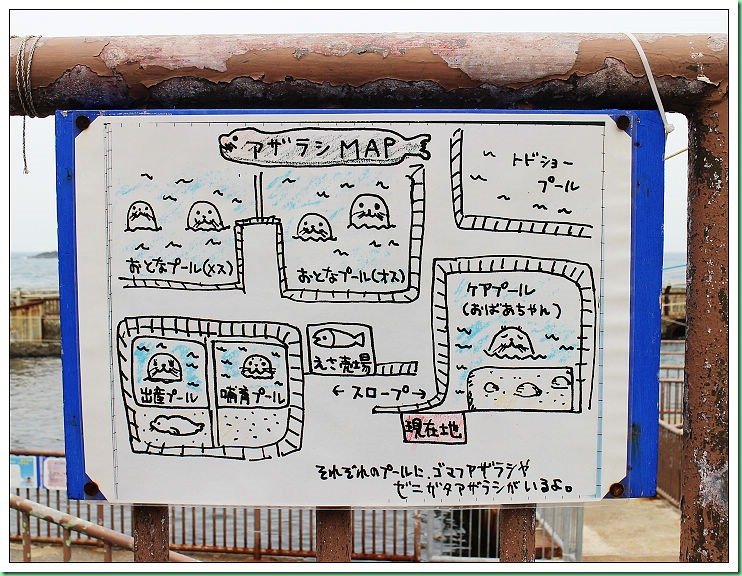 アザラシ MAP
トドショー
プール
おとなプール(メス)
おとなプール(オス)
ケアプール
(おばあちゃん)
えさ売場
出産プール
哺育プール
←スロープ→
現在地
それぞれのプールに、ゴマフアザラシや
ゼニガタアザラシがいるよ。